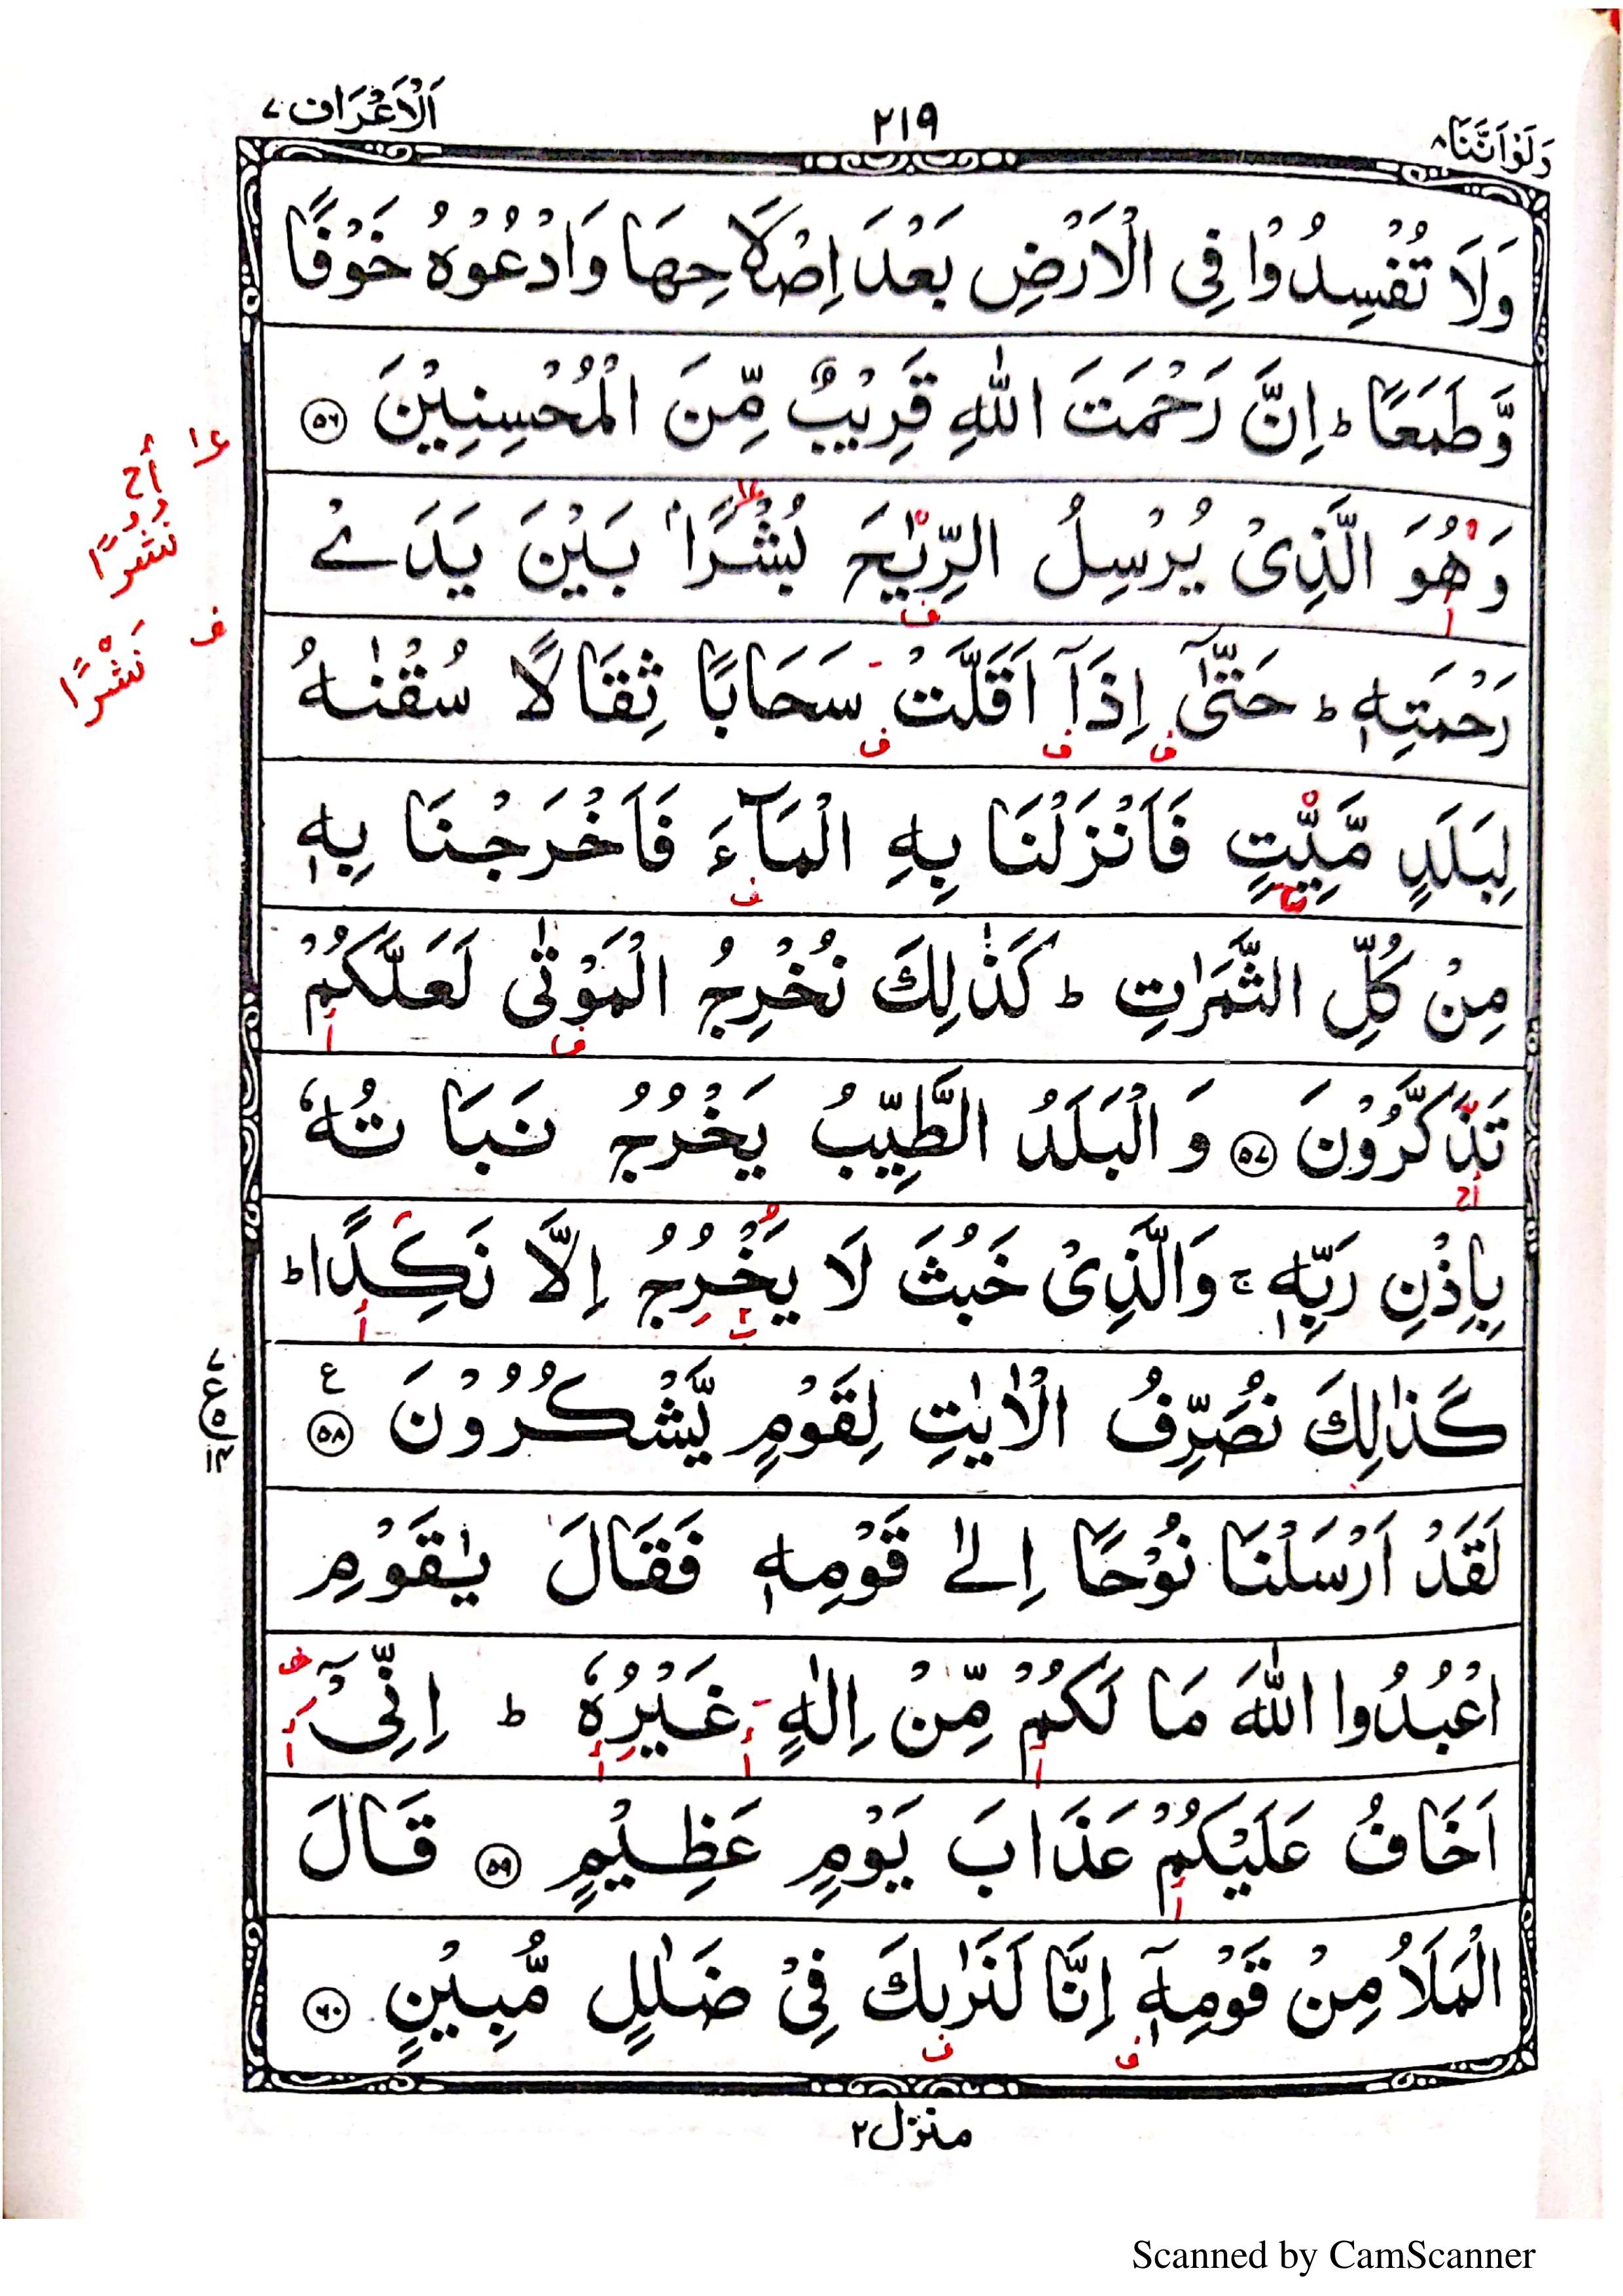 وَلَوْاَنَّنَا ٨
٢١٩
اَلْاَعْرَاف ٧
وَلَا تُفْسِدُوْا فِى الْاَرْضِ بَعْدَ اِصْلَاحِهَا وَادْعُوْهُ خَوْفًا
وَّطَمَعًا ؕ اِنَّ رَحْمَتَ اللّٰهِ قَرِيْبٌ مِّنَ الْمُحْسِنِيْنَ ۝٥٦
وَهُوَ الَّذِىْ يُرْسِلُ الرِّيٰحَ بُشْرًاۢ بَيْنَ يَدَىْ
رَحْمَتِهٖ ؕ حَتّٰۤى اِذَاۤ اَقَلَّتْ سَحَابًا ثِقَالًا سُقْنٰهُ
لِبَلَدٍ مَّيِّتٍ فَاَنْزَلْنَا بِهِ الْمَآءَ فَاَخْرَجْنَا بِهٖ
مِنْ كُلِّ الثَّمَرٰتِ ؕ كَذٰلِكَ نُخْرِجُ الْمَوْتٰى لَعَلَّكُمْ
تَذَكَّرُوْنَ ۝٥٧ وَالْبَلَدُ الطَّيِّبُ يَخْرُجُ نَبَاتُهٗ
بِاِذْنِ رَبِّهٖ ۚ وَالَّذِىْ خَبُثَ لَا يَخْرُجُ اِلَّا نَكِدًا ؕ
كَذٰلِكَ نُصَرِّفُ الْاٰيٰتِ لِقَوْمٍ يَّشْكُرُوْنَ ۝٥٨ ع
لَقَدْ اَرْسَلْنَا نُوْحًا اِلٰى قَوْمِهٖ فَقَالَ يٰقَوْمِ
اعْبُدُوا اللّٰهَ مَا لَكُمْ مِّنْ اِلٰهٍ غَيْرُهٗ ؕ اِنِّىْۤ
اَخَافُ عَلَيْكُمْ عَذَابَ يَوْمٍ عَظِيْمٍ ۝٥٩ قَالَ
الْمَلَاُ مِنْ قَوْمِهٖۤ اِنَّا لَنَرٰىكَ فِىْ ضَلٰلٍ مُّبِيْنٍ ۝٦٠
منزل ٢
نُشُرًا
ف نَشْرًا
Scanned by CamScanner